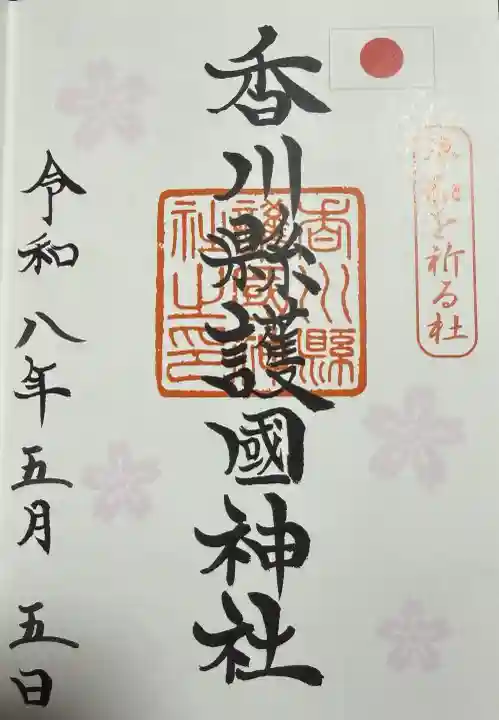 を祈る社
香川縣護國神社
香川縣
護國神
社之印
令和八年五月五日